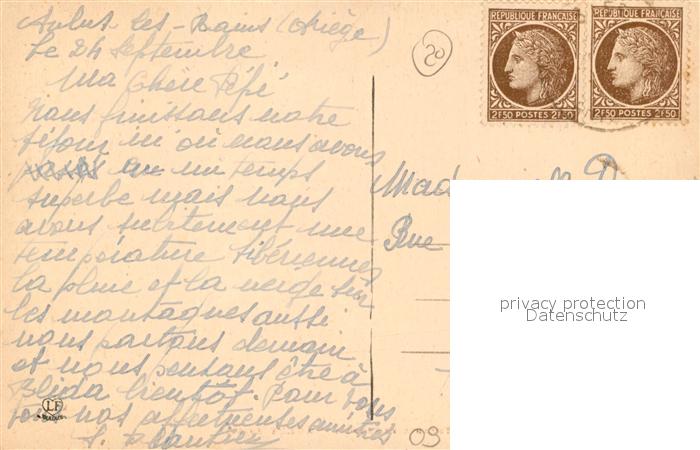 Aulus les-Bains (Ariège)
Le 24 septembre
Ma Chère Fifi
Nous finissons notre
séjour ici où nous avons
un temps
superbe mais nous
avons subitement une
température sibérienne
la pluie et la neige sur
les montagnes aussi
nous partons demain
et nous pensons être à
Blida bientôt. Pour vous
tous nos affectueuses amitiés
20
REPUBLIQUE FRANÇAISE
2F50 POSTES 2F50
REPUBLIQUE FRANÇAISE
2F50 POSTES 2F50
Mad
Rue
privacy protection
Datenschutz
LF
09